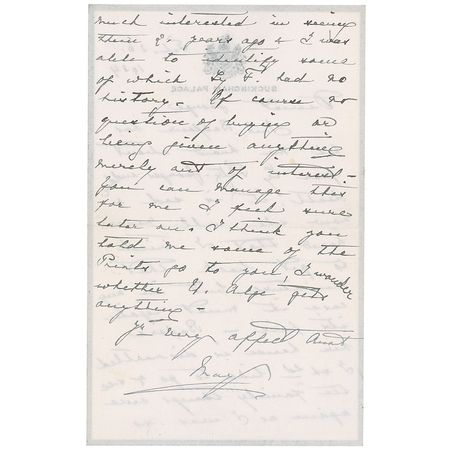 much interested in seeing
them 2 years ago & I was
able to identify some
of which Ly F. had no
history. Of course no
question of buying or
being given anything
merely out of interest.
You can manage this
for me I feel sure
later on. I think you
told me some of the
Prints go to you, I wonder
whether U. Alge gets
anything —
yr very affect Aunt
Mary
BUCKINGHAM PALACE